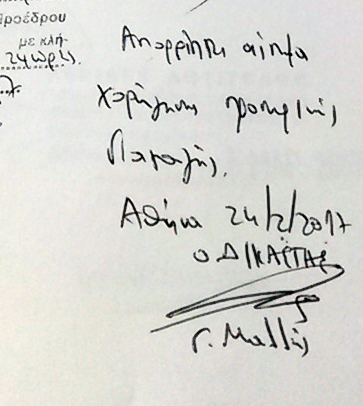 Προέδρου
με κλή-
24ωρις.
Απορρίπτει αίτημα
χορήγησης προσωρινής
διαταγής.
Αθήνα 24/2/2017
Ο ΔΙΚΑΣΤΗΣ
Γ.